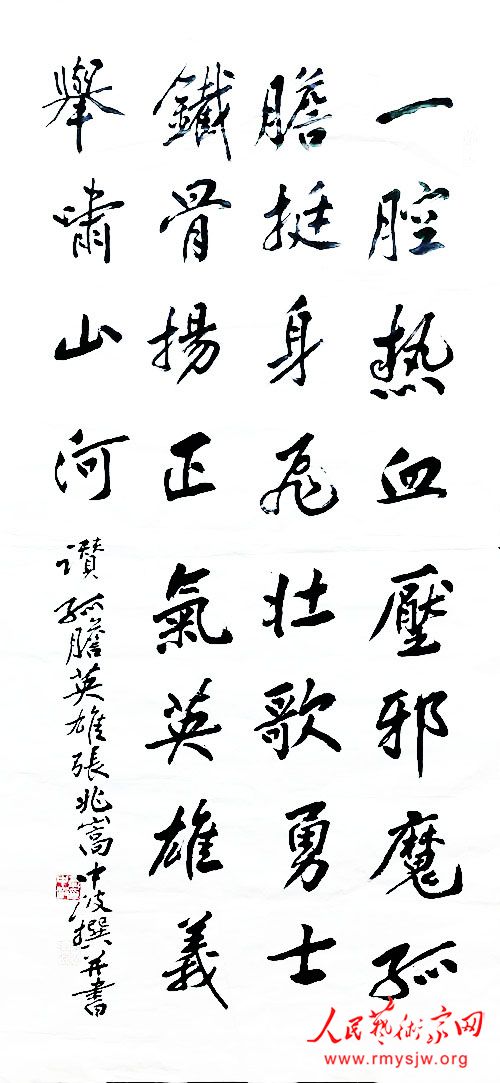 一腔热血壓邪魔孤
膽挺身飛壯歌勇士
鐵骨揚正氣英雄義
舉嘯山河
讚孤膽英雄張兆嵩中波撰并書
人民藝術家网
www.rmysjw.org